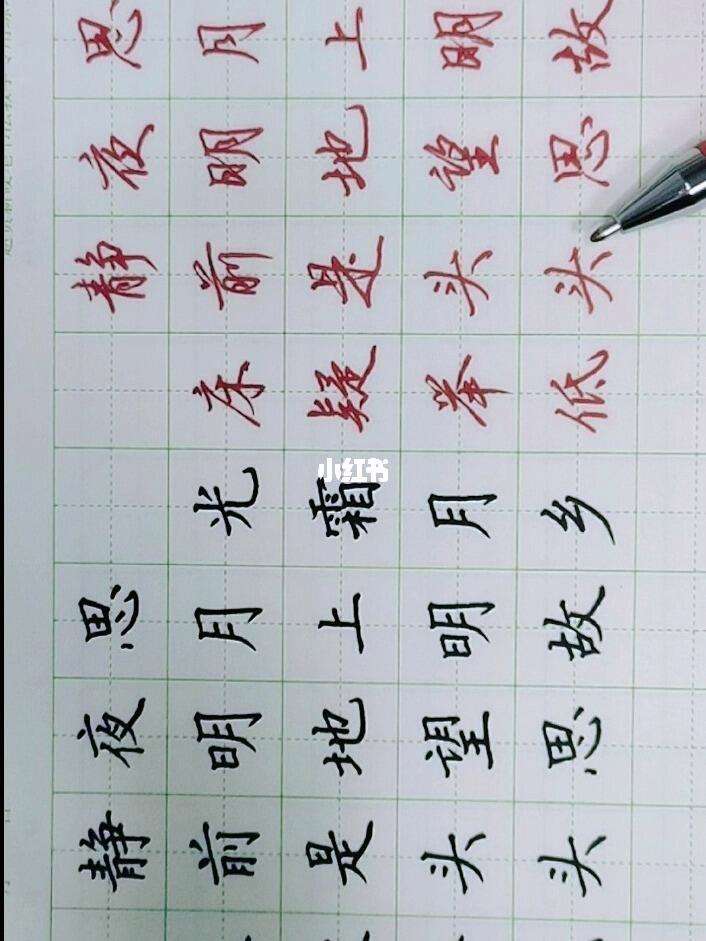 静夜思
前明月光
是地上霜
头望明月
头思故乡
静夜思
床前明月
疑是地上
举头望明
低头思故
小红书